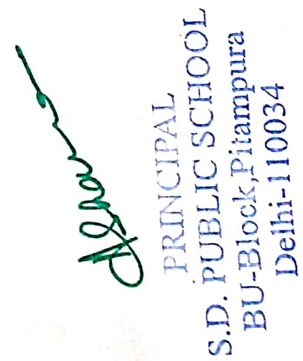 PRINCIPAL
S.D. PUBLIC SCHOOL
BU-Block,Pitampura
Delhi-110034